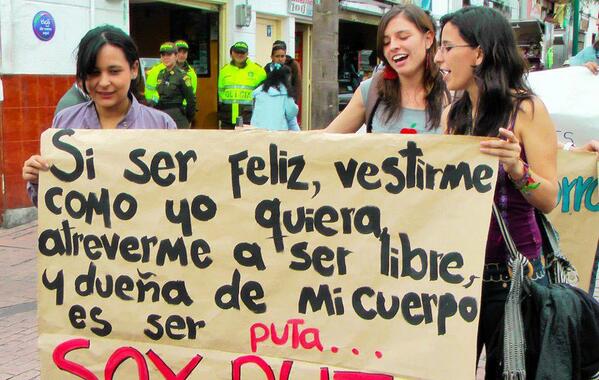 Si ser Feliz, vestirme
como yo quiera,
atreverme a ser libre,
y dueña de mi cuerpo
es ser puta...
SOY PUT